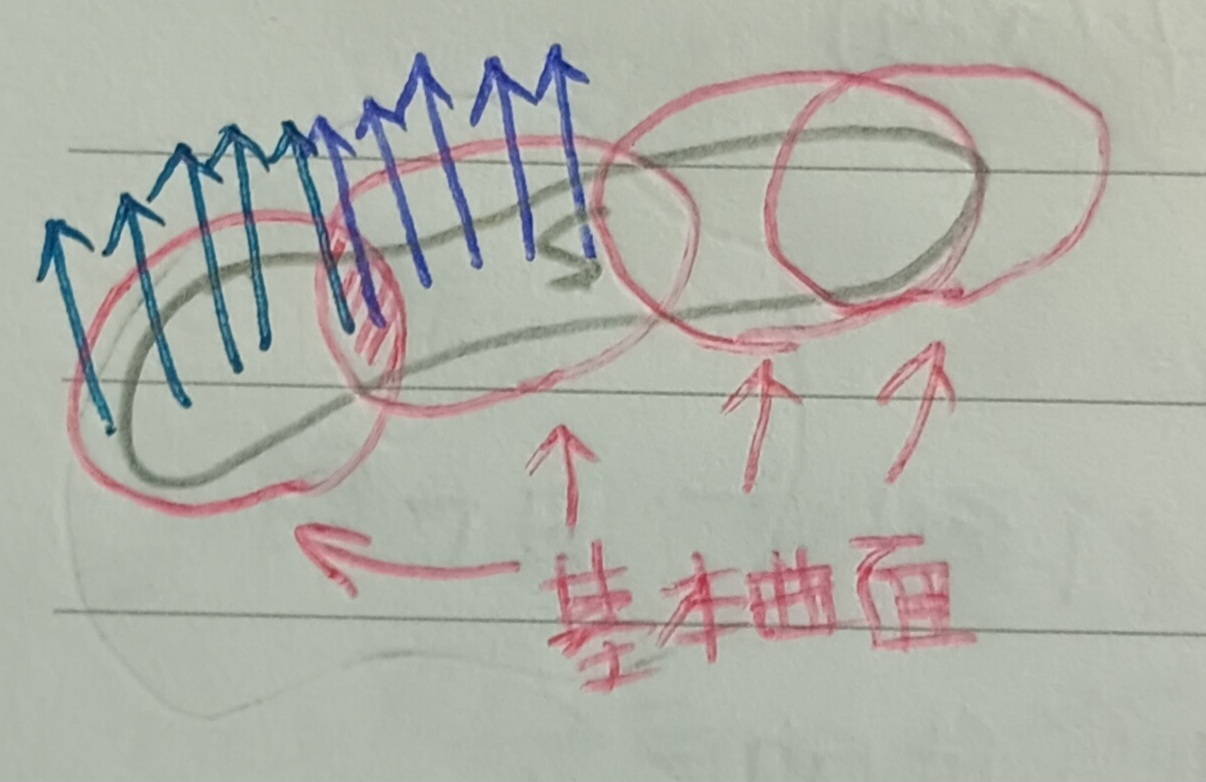 S
基本曲面